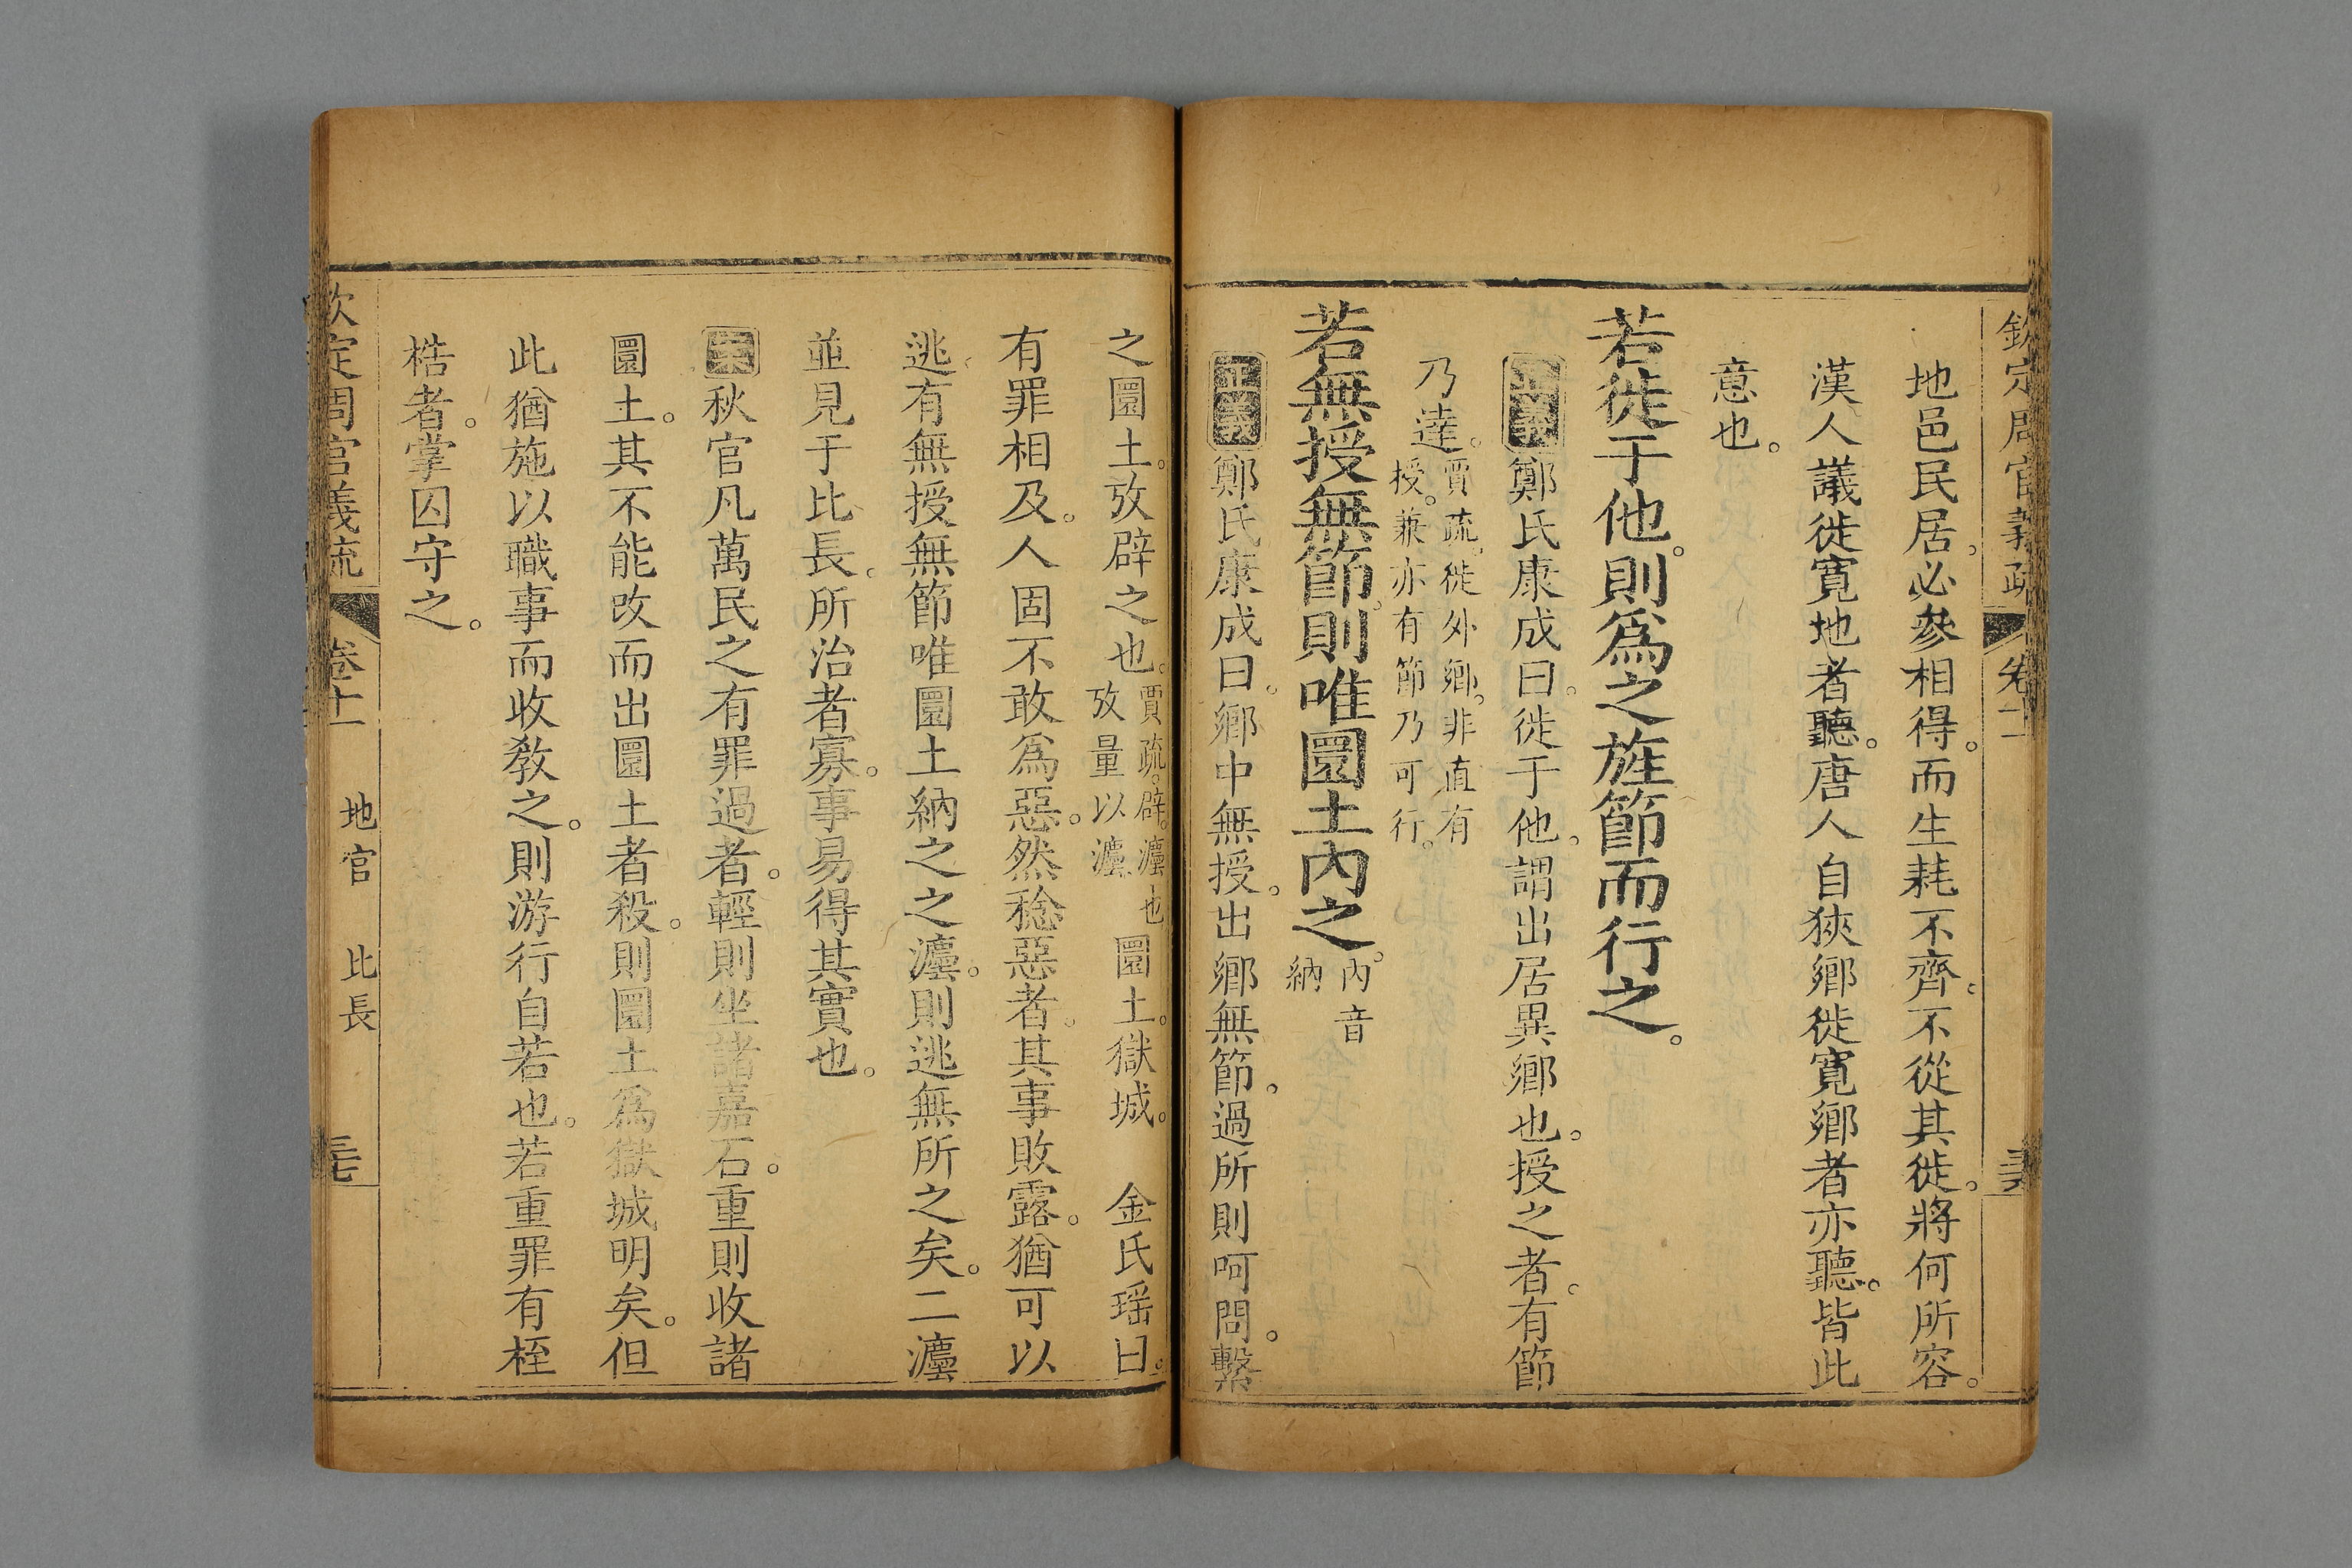 欽定周官義疏 卷十一
地邑民居。必參相得。而生耗不齊。不從其徙。將何所容。
漢人議徙寬地者聽。唐人自狹鄉徙寬鄉者亦聽。皆此
意也。
若徙于他。則爲之旌節而行之。
正義鄭氏康成曰。徙于他。謂出居異鄉也。授之者。有節
乃達。賈疏。徙外鄉。非直有授。兼亦有節乃可行。
若無授無節。則唯圜土內之。內音納
正義鄭氏康成曰。鄉中無授。出鄉無節。過所則呵問。繫
之圜土。攷辟之也。賈疏。辟。灋也攷量以灋 圜土。獄城。 金氏瑶曰。
有罪相及。人固不敢爲惡。然稔惡者。其事敗露。猶可以
逃有無授無節唯圜土納之之灋。則逃無所之矣。二灋
並見于比長。所治者寡。事易得其實也。
秋官凡萬民之有罪過者。輕則坐諸嘉石。重則收諸
圜土。其不能改而出圜土者殺。則圜土爲獄城明矣。但
此猶施以職事而收教之。則游行自若也。若重罪有桎
梏者。掌囚守之。
欽定周官義疏 卷十一 地官 比長 三七